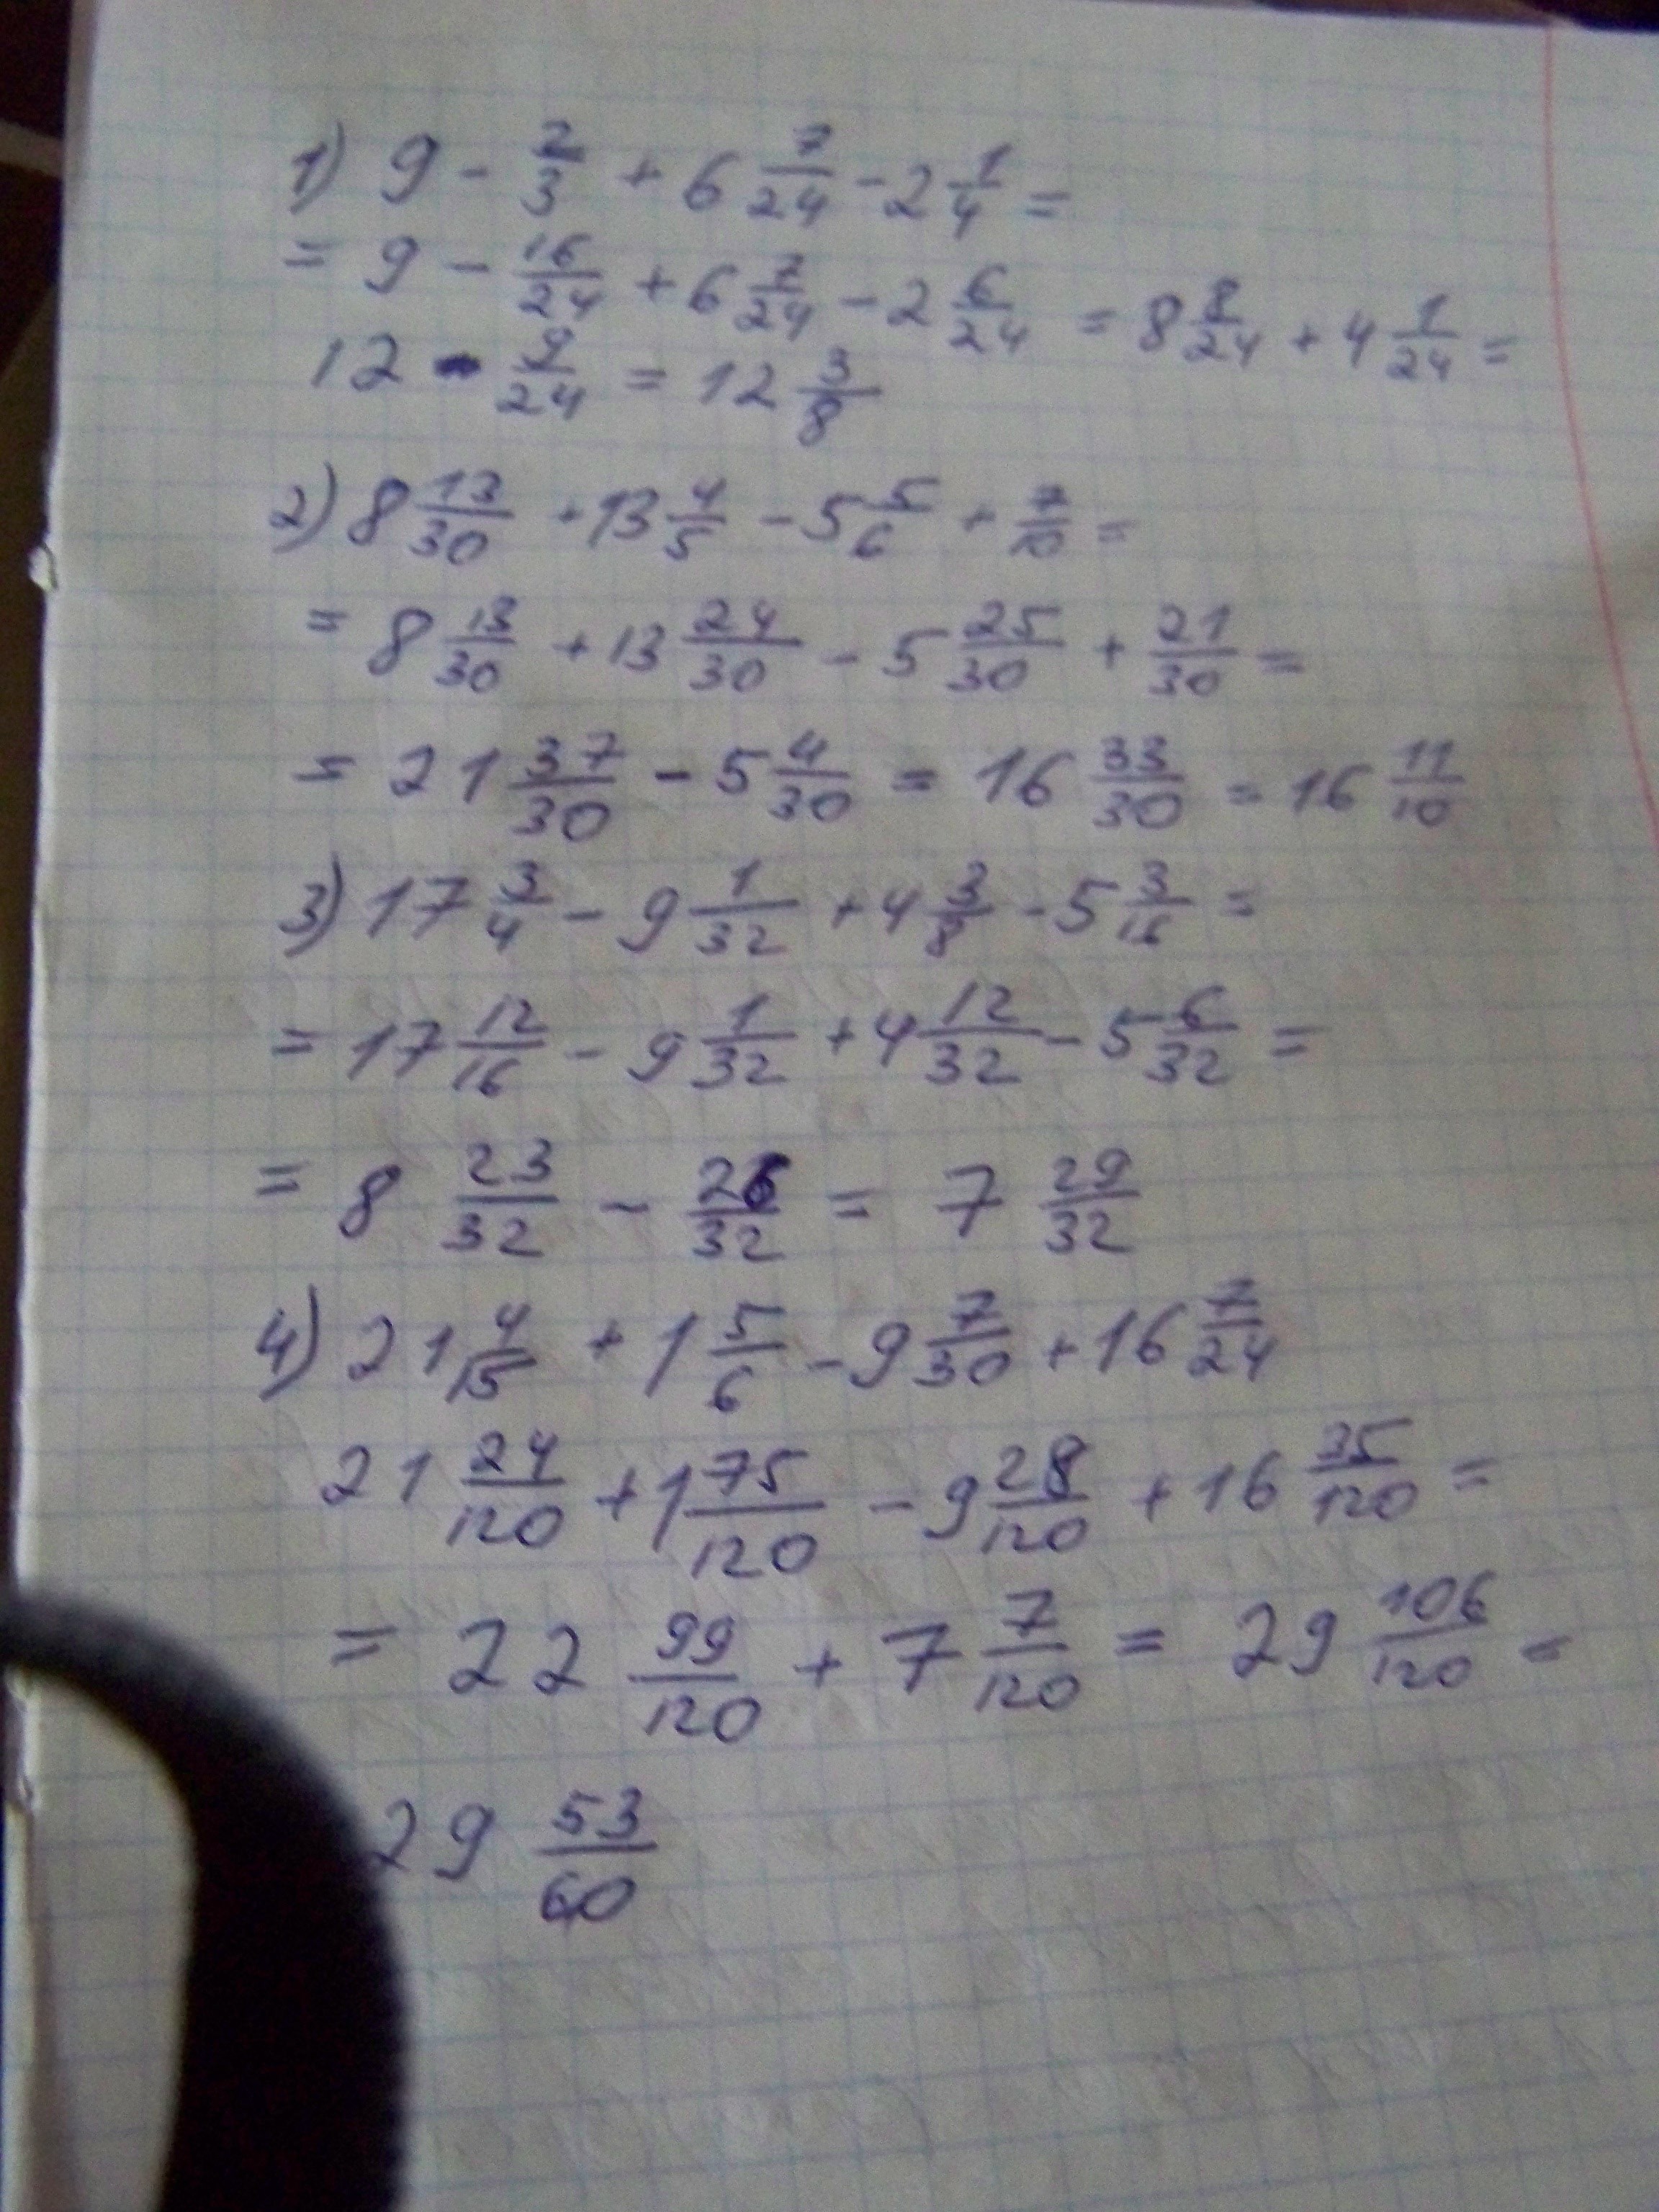 1) 9 - 2/3 + 6 7/24 - 2 1/4 =
= 9 - 16/24 + 6 7/24 - 2 6/24 = 8 8/24 + 4 1/24 =
12 9/24 = 12 3/8
2) 8 13/30 + 13 4/5 - 5 5/6 + 7/10 =
= 8 13/30 + 13 24/30 - 5 25/30 + 21/30 =
= 21 37/30 - 5 4/30 = 16 33/30 = 16 11/10
3) 17 3/4 - 9 1/32 + 4 3/8 - 5 3/16 =
= 17 12/16 - 9 1/32 + 4 12/32 - 5 6/32 =
= 8 23/32 - 26/32 = 7 29/32
4) 21 4/15 + 1 5/6 - 9 7/30 + 16 7/24
21 24/120 + 1 75/120 - 9 28/120 + 16 35/120 =
= 22 99/120 + 7 7/120 = 29 106/120 =
29 53/60